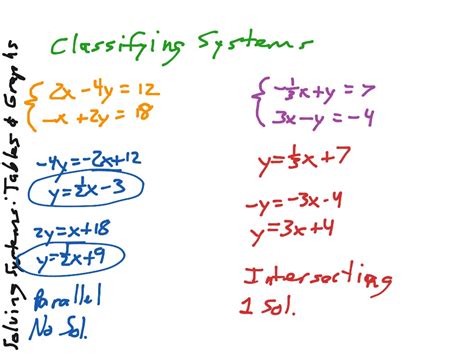 Solving Systems: Tables & Graphs
Classifying Systems
2x - 4y = 12
-x + 2y = 18
-4y = -2x + 12
y = 1/2x - 3
2y = x + 18
y = 1/2x + 9
Parallel
No Sol.
-1/3x + y = 7
3x - y = -4
y = 1/3x + 7
-y = -3x - 4
y = 3x + 4
Intersecting
1 Sol.